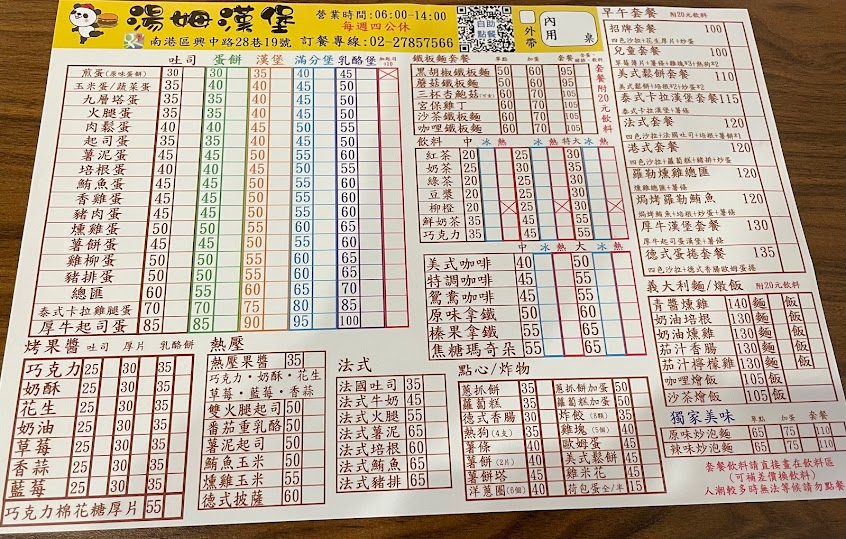 湯姆漢堡
營業時間:06:00-14:00
每週四公休
南港區興中路28巷19號 訂餐專線:02-27857566
自助點餐
外帶
內用 桌
吐司 蛋餅 漢堡 滿分堡 乳酪堡 加起司+10
煎蛋(原味蛋餅) 30 30 35 40 45
玉米蛋/蔬菜蛋 35 40 40 45 50
九層塔蛋 35 40 40 45 50
火腿蛋 35 40 40 45 50
肉鬆蛋 40 40 45 50 55
起司蛋 35 40 40 45 50
薯泥蛋 45 45 50 55 60
培根蛋 40 45 45 50 55
鮪魚蛋 45 45 50 55 60
香雞蛋 45 45 50 55 60
豬肉蛋 45 45 50 55 60
燻雞蛋 50 50 55 60 65
薯餅蛋 45 45 50 55 60
雞柳蛋 50 50 55 60 65
豬排蛋 50 50 55 60 65
總匯 60 55 60 65 70
泰式卡拉雞腿蛋 70 70 75 80 85
厚牛起司蛋 85 85 90 95 100
鐵板麵套餐 單點 加蛋 套餐
黑胡椒鐵板麵 50 60 95
蘑菇鐵板麵 50 60 95
三杯杏鮑菇 60 70 105
宮保雞丁 60 70 105
沙茶鐵板麵 60 70 105
咖哩鐵板麵 60 70 105
套餐附20元飲料
飲料 中 冰 熱 特大 冰 熱
紅茶 20 25 30
奶茶 25 30 35
綠茶 20 25 30
豆漿 20 25 30
柳橙 20 25 30
鮮奶茶 35 45
巧克力 35 45
中 冰 熱 大 冰 熱
美式咖啡 40 50
特調咖啡 45 55
鴛鴦咖啡 45 55
原味拿鐵 55 65
榛果拿鐵 55 65
焦糖瑪奇朵 55 65
早午套餐 附20元飲料
招牌套餐 100
四色沙拉+花生厚片+炒蛋
兒童套餐 100
草莓薄片+薯條+雞塊*2+熱狗*2
美式鬆餅套餐 110
美式鬆餅+培根*2+炒蛋*2
泰式卡拉漢堡套餐 115
泰式卡拉漢堡+薯條
法式套餐 120
四色沙拉+法國吐司+培根+薯餅*1
港式套餐 120
四色沙拉+蘿蔔糕+豬排+炒蛋
羅勒燻雞總匯 120
燻雞總匯+薯條
焗烤羅勒鮪魚 120
焗烤鮪魚+培根+炒蛋+薯條
厚牛漢堡套餐 130
厚牛起司蛋漢堡+薯條
德式蛋捲套餐 135
四色沙拉+德式香腸歐姆蛋捲
義大利麵/燉飯 附20元飲料
青醬燻雞 140 麵 飯
奶油培根 130 麵 飯
奶油燻雞 130 麵 飯
茄汁香腸 130 麵 飯
茄汁檸檬雞 130 麵 飯
咖哩燴飯 105 飯
沙茶燴飯 105 飯
獨家美味 單點 加蛋 套餐
原味炒泡麵 65 75 110
辣味炒泡麵 65 75 110
套餐飲料請直接畫在飲料區
(可補差價換飲料)
人潮較多時無法等候請勿點餐
烤果醬 吐司 厚片 乳酪餅
巧克力 25 30 35
奶酥 25 30 35
花生 25 30 35
奶油 25 30 35
草莓 25 30 35
香蒜 25 30 35
藍莓 25 30 35
巧克力棉花糖厚片 55
熱壓
熱壓果醬 35
巧克力・奶酥・花生
草莓・藍莓・香蒜
雙火腿起司 50
番茄重乳酪 50
薯泥起司 50
鮪魚玉米 50
燻雞玉米 50
德式披薩 50
法式
法國吐司 35
法式牛奶 45
法式火腿 55
法式薯泥 65
法式培根 60
法式鮪魚 65
法式豬排 65
點心/炸物
蔥抓餅 35
蘿蔔糕 35
德式香腸 30
熱狗(4支) 35
薯條 40
薯餅(2片) 40
薯餅塔 45
洋蔥圈(6個) 40
蔥抓餅加蛋 50
蘿蔔糕加蛋 50
炸餃(8顆) 35
雞塊(5個) 40
歐姆蛋 45
美式鬆餅 45
雞米花 45
荷包蛋全/半 15